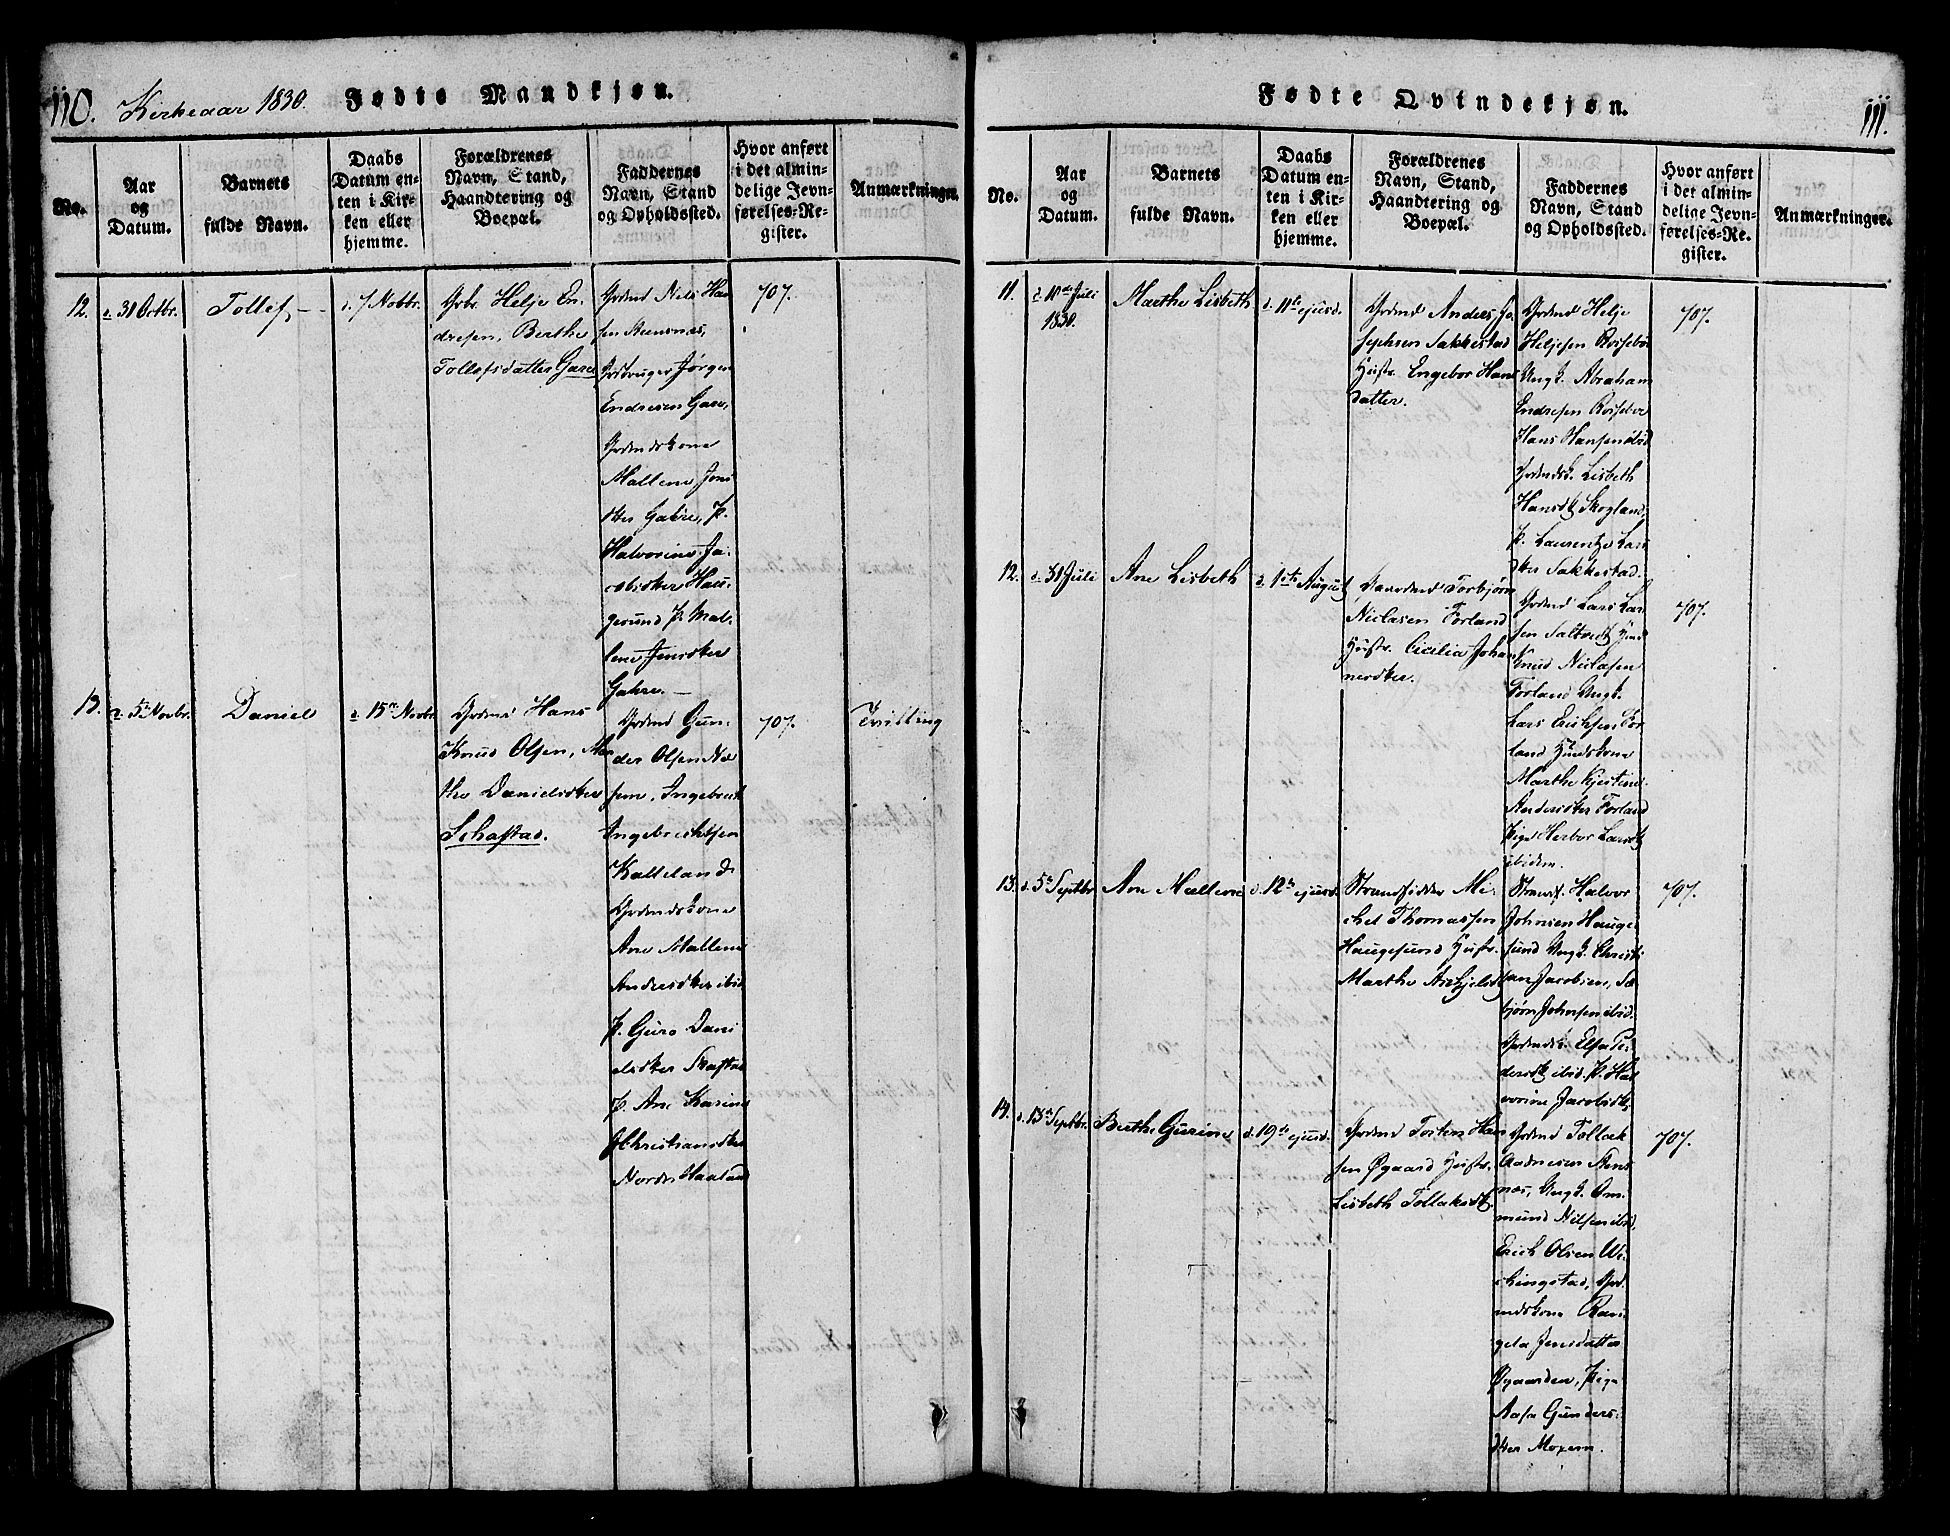 110. Kirkeaar 1830. Fødte Mandkjøn.
No.
Aar
og
Datum.
Barnets
fulde Navn.
Daabs
Datum en-
ten i Kir-
ken eller
hjemme.
Forældrenes
Navn, Stand,
Haandtering og
Boepæl.
Faddernes
Navn, Stand
og Opholdssted.
Hvor anført
i det almin-
delige Jevn-
førelses-Re-
gister.
Anmærkninger.
12.
d. 31 Octbr.
Tollef
d. 7 Novbr.
Grbr. Helje En-
dresen, Berthe
Tollefsdatter Gare
Grdmd Niels Han
sen
Grdbruger Jørgen
Endresen Gare,
Grdmdskone
Mallene Jens
dtter Gahre, P.
Halvorine Ja-
cobsdtter Hau-
gesund P. Mal-
lene Jensdtter
Gahre. —
707.
13.
d. 5te Novbr.
Daniel
d. 15n Novbr
Grdmd Hans
Knud Olsen, Mar
the Danielsdtter
Schastad.
Grdmd Gun-
der Olsen Næ
sem, Ingebreth
Ingebrethsen
Kalleland
Grdmdskone
Ane Mallene
Andersdtter ibid
P. Guro Dani
elsdtter Skastad
P. Ane Karine
Christiansdtter
Nordre Haaland
707.
Tvilling
Fødte Qvindekjøn.
111.
No.
Aar
og
Datum.
Barnets
fulde Navn.
Daabs
Datum en-
ten i Kir-
ken eller
hjemme.
Forældrenes
Navn, Stand,
Haandtering og
Boepæl.
Faddernes
Navn, Stand
og Opholdssted.
Hvor anført
i det almin-
delige Jevn-
førelses-Re-
gister.
Anmærkninger.
11.
d. 10de Juli
1830.
Marthe Lisbeth
d. 11te ejusd.
Grdmd Anders Jo
sephsen Sakkestad
Hustr. Engebor Hans
datter.
Grdmd Helje
Heljesen Røsebø
Ungk. Abraham
Endresen Røsebø
Hans Hansen ibid
Grdmdsk. Lisbeth
Hansdtr Skogland,
P. Laurentze Lars
dtter Sakkestad.
707.
12.
d. 31 Juli
Ane Lisbeth
d. 1ste August
Torbjørn
Niclasen Førland
Hustr. Cicilia Johan
nesdtter.
Grdmd Lars Lar
sen Saltvedt
Knud Niclasen
Førland Ungk.
Lars Erichsen Før
land
Marthe Kjestine
Andersdtter Førland
Pige Herbor Larsdtr
ibidem.
707.
13.
d. 5te Septbr
Ane Mallene
d. 12te ejusd.
Strandsidder Mi-
chel Thomassen
Haugesund Hustr.
Marthe Askjelsdtr
Strands. Halvor
Johnsen Hauge
sund Ungk. Christi
an Jacobsen,
bjørn Johnsen ibid.
Grdmdsk. Elsa Pe-
dersdtr ibid. P. Hal
vorine Jacobsdtr
707.
14.
d. 13n Septbr.
Berthe Gurine
d. 19de ejusd.
Grdmd Torsten Han
sen Øgaard Hustr.
Lisbeth Tollaksdtr.
Grdmd Tollak
Aadnesen Stens
næs, Ungk. Om-
mund Nilsen ibid,
Erich Olsen Wi-
chingstad, Grd
mdskone Ran
gela Jensdatter
Øgaarden, Pige
Aasa Gunders-
dtter Moxem.
707.